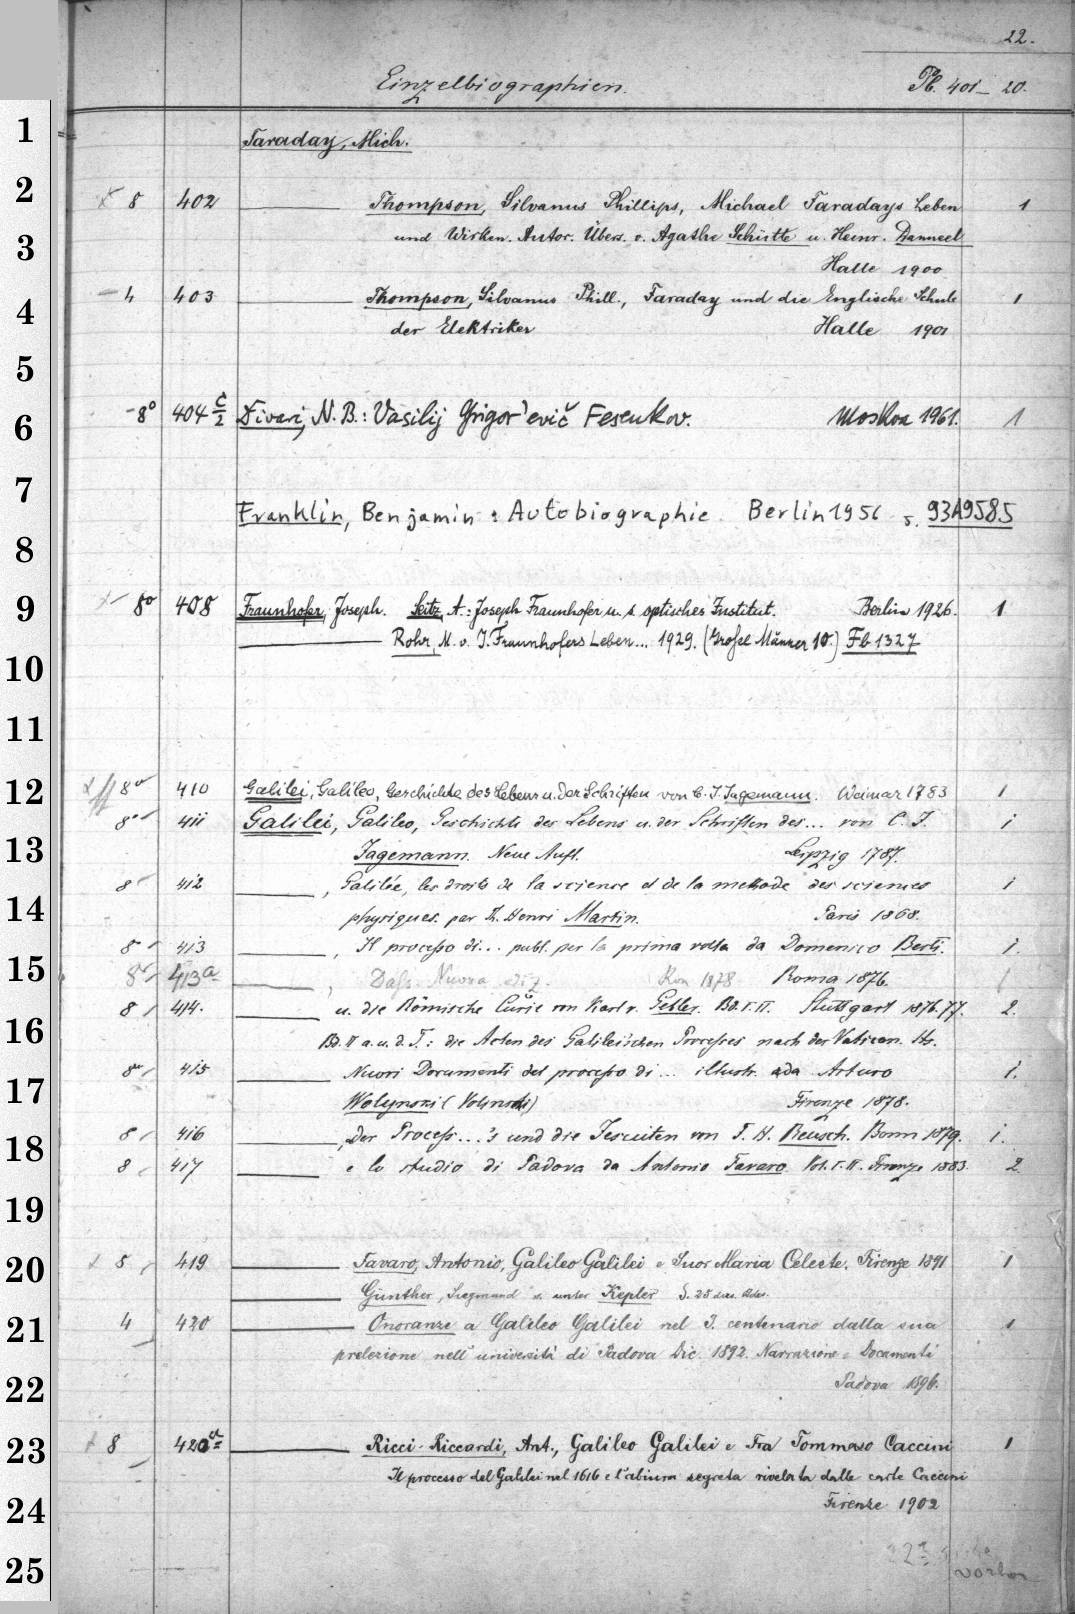 22.
Einzelbiographien. Pb. 401– 20.
1
Faraday, Mich.
2
8 402 Thompson, Silvanus Phillips, Michael Faradays Leben 1
3
und Wirken. Autor. Übers. v. Agathe Schütte u. Heinr. Danneel
Halle 1900
4
4 403 Thompson, Silvanus Phill., Faraday und die Englische Schule 1
der Elektriker Halle 1901
5
6
8° 404 c/2 Divari, N. B.: Vasilij Grigor'evič Fesenkov. Moskva 1961. 1
7
Franklin, Benjamin: Autobiographie. Berlin 1956 s. 93A9585
8
9
8° 408 Fraunhofer, Joseph. Seitz, A.: Joseph Fraunhofer u. s. optisches Institut. Berlin 1926. 1
Rohr, M. v. J. Fraunhofers Leben... 1929. (Große Männer 10.) Fb 1327
10
11
12
8° 410 Galilei, Galileo, Geschichte des Lebens u. der Schriften von C. J. Jagemann. Weimar 1783 1
8° 411 Galilei, Galileo, Geschichte des Lebens u. der Schriften des... von C. J. 1
13
Jagemann. Neue Aufl. Leipzig 1787.
8° 412 , Galilée, les droits de la science et de la méthode des sciences 1
14
physiques. par Th. Henri Martin. Paris 1868.
8° 413 , Il processo di... publ. per la prima volta da Domenico Berti. 1.
15
8° 413a , Dass. Nuova ediz. 1878 Roma 1876. 1
8 414. u. die Römische Curie von Karl v. Gebler. Bd. I. II. Stuttgart 1876.77. 2.
16
Bd. II a. u. d. T.: die Acten des Galilei'schen Processes nach der Vatican. Hs.
8° 415 Nuovi Documenti del processo di... illustr. da Arturo 1.
17
Wolynski (Volynski) Firenze 1878.
18
8 416 , Der Process...'s und die Jesuiten von F. H. Reusch. Bonn 1879. 1.
8 417 e lo studio di Padova da Antonio Favaro. Vol. I. II. Firenze 1883. 2
19
20
8 419 Favaro, Antonio, Galileo Galilei e Suor Maria Celeste. Firenze 1891 1
Günther, Siegmund s. unter Kepler S. 25 das. Abs.
21
4 420 Onoranze a Galileo Galilei nel 3. centenario dalla sua 1
prelezione nell' università di Padova Dic. 1892. Narrazione e Documenti
22
Padova 1896.
23
8 420a Ricci-Riccardi, Ant., Galileo Galilei e Fra Tommaso Caccini 1
Il processo del Galilei nel 1616 e l'abiura segreta rivelata dalle carte Caccini
24
Firenze 1902
22a
25